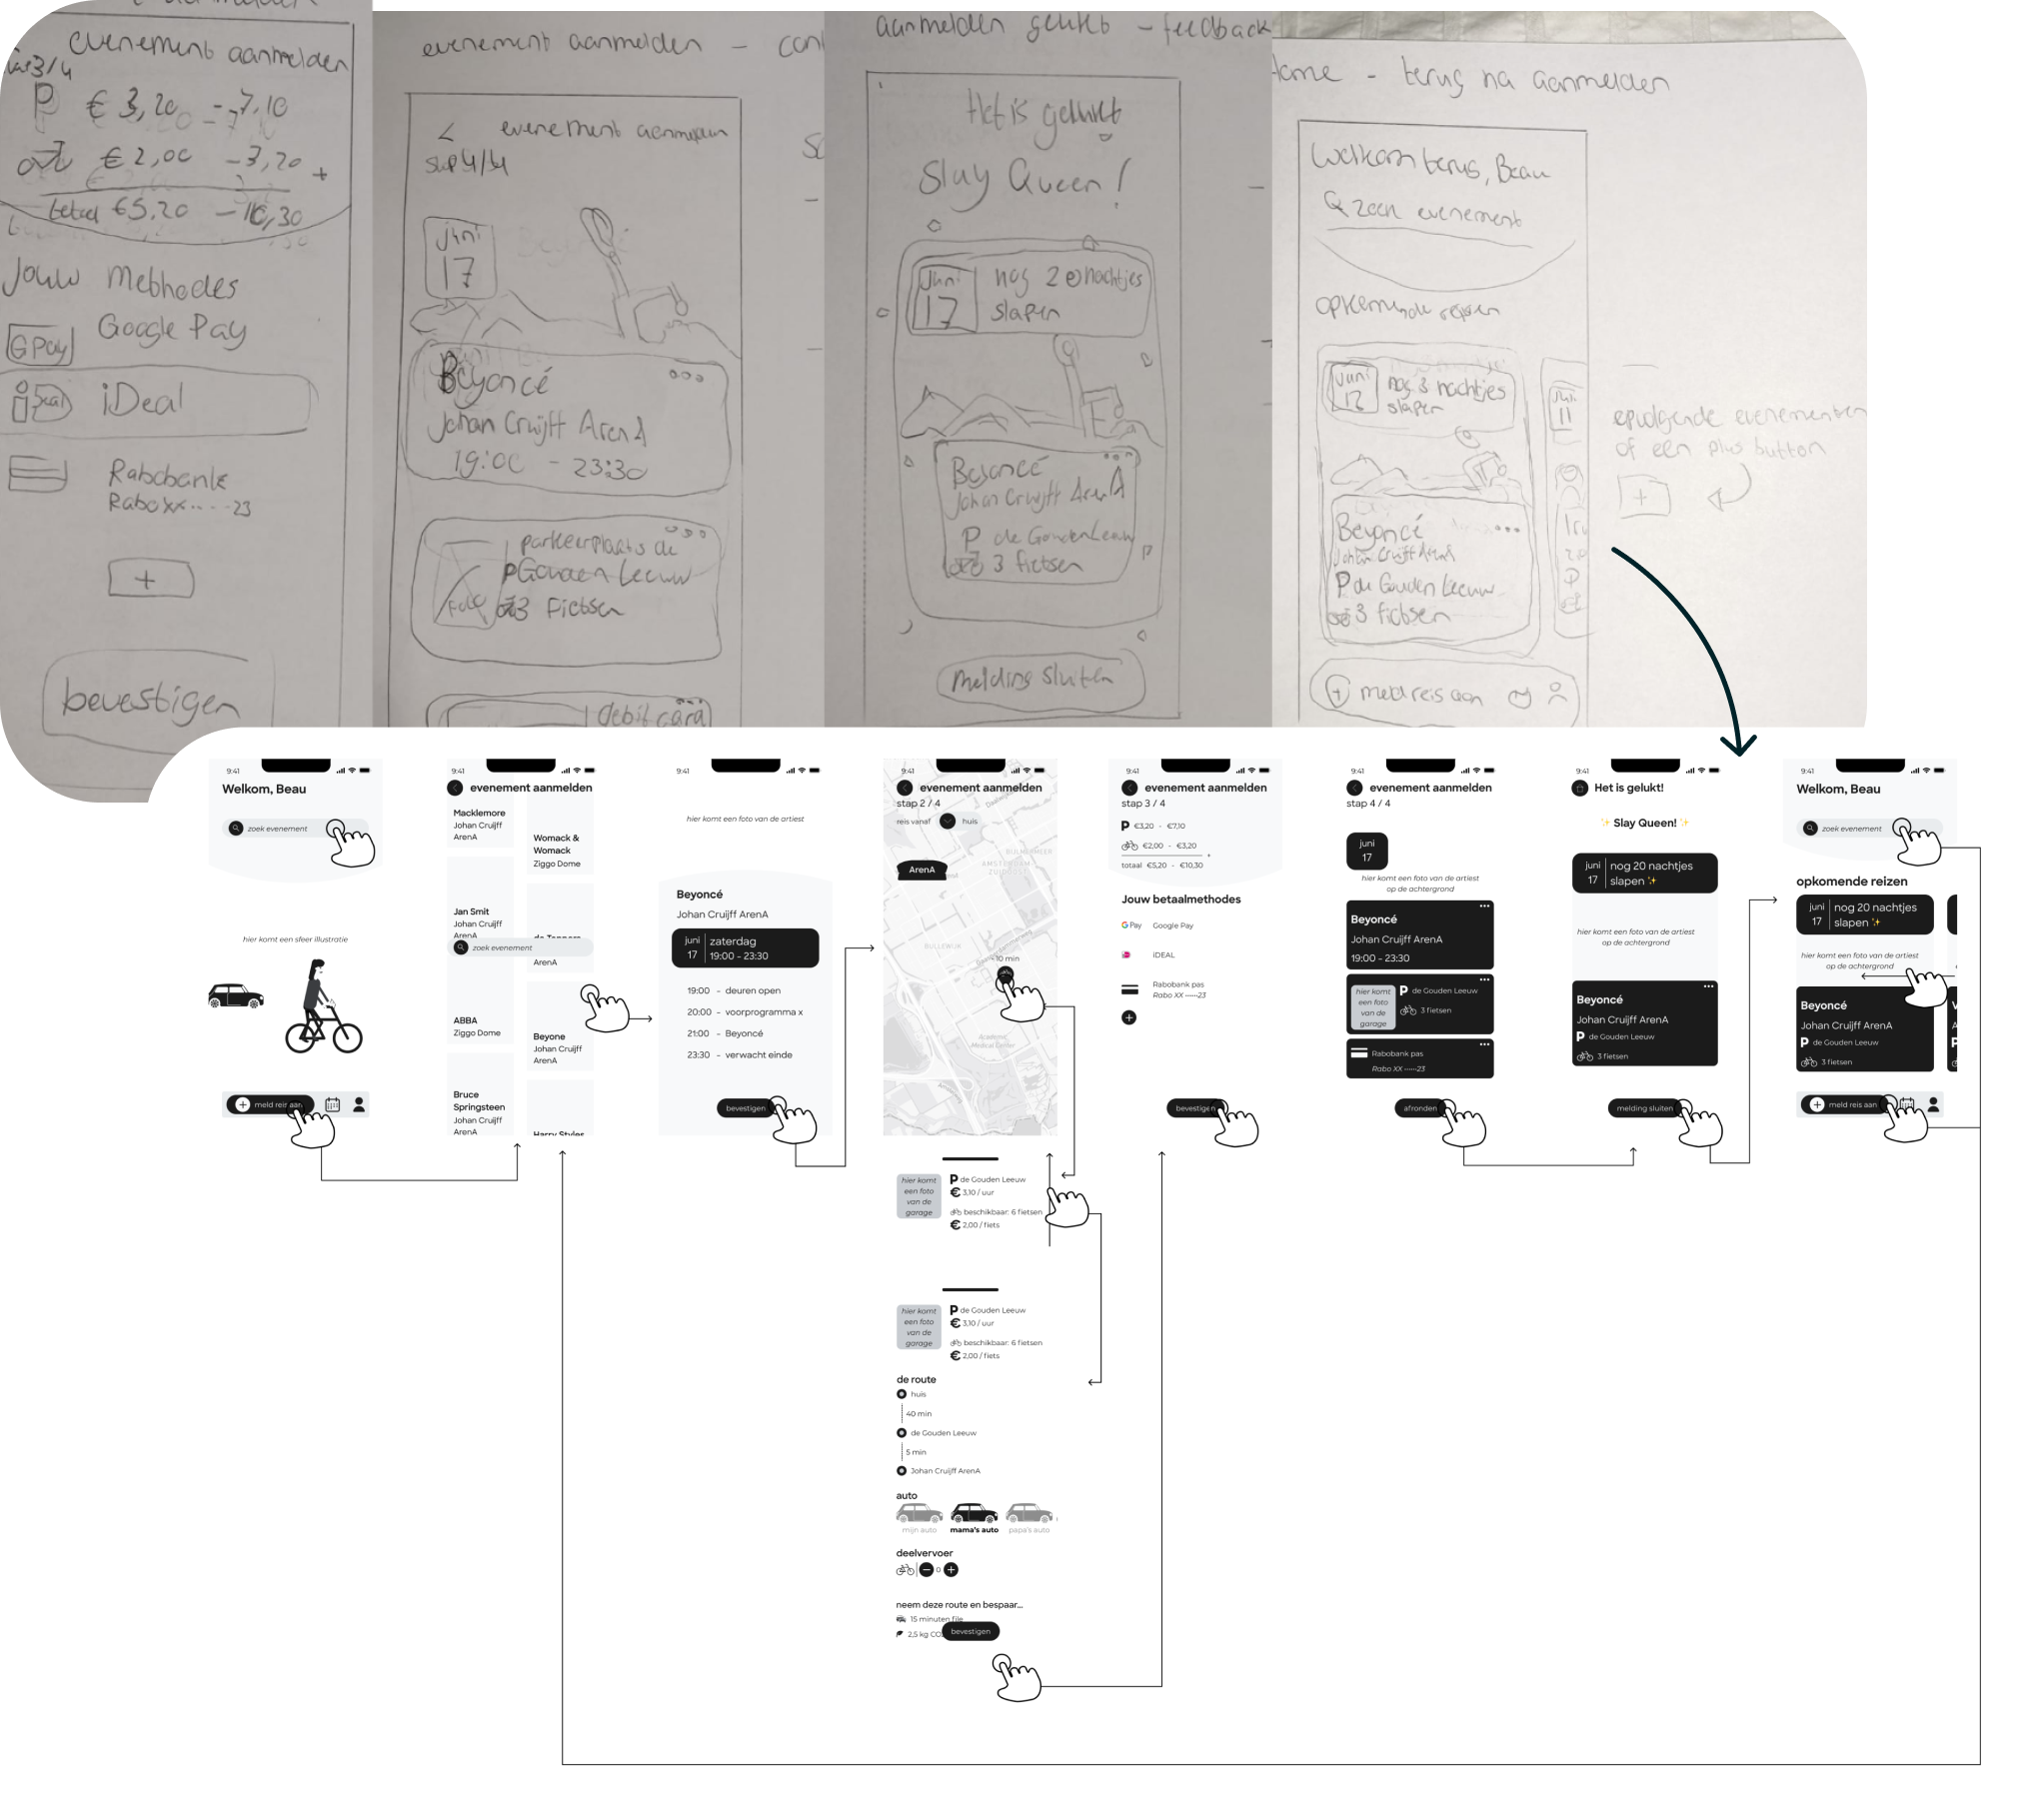 evenement aanmelden
stap 3/4
P € 3,20 - 7,10
€ 2,00 - 3,20 +
totaal €5,20 - 10,30
Jouw methodes
G Pay Google Pay
iDeal iDeal
Rabobank
Rabo xx .... 23
+
bevestigen
evenement aanmelden -
< evenement aanmelden
stap 4/4
juni
17
Beyoncé
Johan Cruijff ArenA
19:00 - 23:30
parkeerplaats de
P Gouden Leeuw
3 fietsen
foto
debit card
aanmelden gelukt - feedback
Het is gelukt
Slay Queen!
juni
17
nog 20 nachtjes
slapen
Beyoncé
Johan Cruijff ArenA
P de Gouden Leeuw
3 fietsen
melding sluiten
Home - terug na aanmelden
Welkom terug, Beau
zoek evenement
opkomende reizen
juni
17
nog 3 nachtjes
slapen
Beyoncé
Johan Cruijff ArenA
P de Gouden Leeuw
3 fietsen
juni
11
+ meld reis aan
opvolgende evenementen
of een plus button
+
9:41
Welkom, Beau
zoek evenement
hier komt een sfeer illustratie
meld reis aan
9:41
evenement aanmelden
Macklemore
Johan Cruijff
ArenA
Womack &
Womack
Ziggo Dome
Jan Smit
Johan Cruijff
ArenA
de Toppers
zoek evenement
ArenA
ABBA
Ziggo Dome
Beyone
Johan Cruijff
ArenA
Bruce
Springsteen
Johan Cruijff
ArenA
Harry Styles
9:41
hier komt een foto van de artiest
Beyoncé
Johan Cruijff ArenA
juni
17
zaterdag
19:00 - 23:30
19:00 - deuren open
20:00 - voorprogramma x
21:00 - Beyoncé
23:30 - verwacht einde
bevestigen
9:41
evenement aanmelden
stap 2 / 4
reis vanaf huis
ArenA
BULLEWIJK
10 min
Academic
Medical Center
hier komt
een foto
van de
garage
P de Gouden Leeuw
€ 3,10 / uur
beschikbaar: 6 fietsen
€ 2,00 / fiets
hier komt
een foto
van de
garage
P de Gouden Leeuw
€ 3,10 / uur
beschikbaar: 6 fietsen
€ 2,00 / fiets
de route
huis
40 min
de Gouden Leeuw
5 min
Johan Cruijff ArenA
auto
mijn auto mama's auto papa's auto
deelvervoer
0
neem deze route en bespaar...
15 minuten file
2,5 kg CO
bevestigen
9:41
evenement aanmelden
stap 3 / 4
P €3,20 - €7,10
€2,00 - €3,20
+
totaal €5,20 - €10,30
Jouw betaalmethodes
G Pay Google Pay
iDEAL
Rabobank pas
Rabo XX -----23
bevestigen
9:41
evenement aanmelden
stap 4 / 4
juni
17
hier komt een foto van de artiest
op de achtergrond
Beyoncé
Johan Cruijff ArenA
19:00 - 23:30
hier komt
een foto
van de
garage
P de Gouden Leeuw
3 fietsen
Rabobank pas
Rabo XX -----23
afronden
9:41
Het is gelukt!
✨ Slay Queen! ✨
juni
17
nog 20 nachtjes
slapen ✨
hier komt een foto van de artiest
op de achtergrond
Beyoncé
Johan Cruijff ArenA
P de Gouden Leeuw
3 fietsen
melding sluiten
9:41
Welkom, Beau
zoek evenement
opkomende reizen
juni
17
nog 20 nachtjes
slapen ✨
hier komt een foto van de artiest
op de achtergrond
Beyoncé
Johan Cruijff ArenA
P de Gouden Leeuw
3 fietsen
meld reis aan